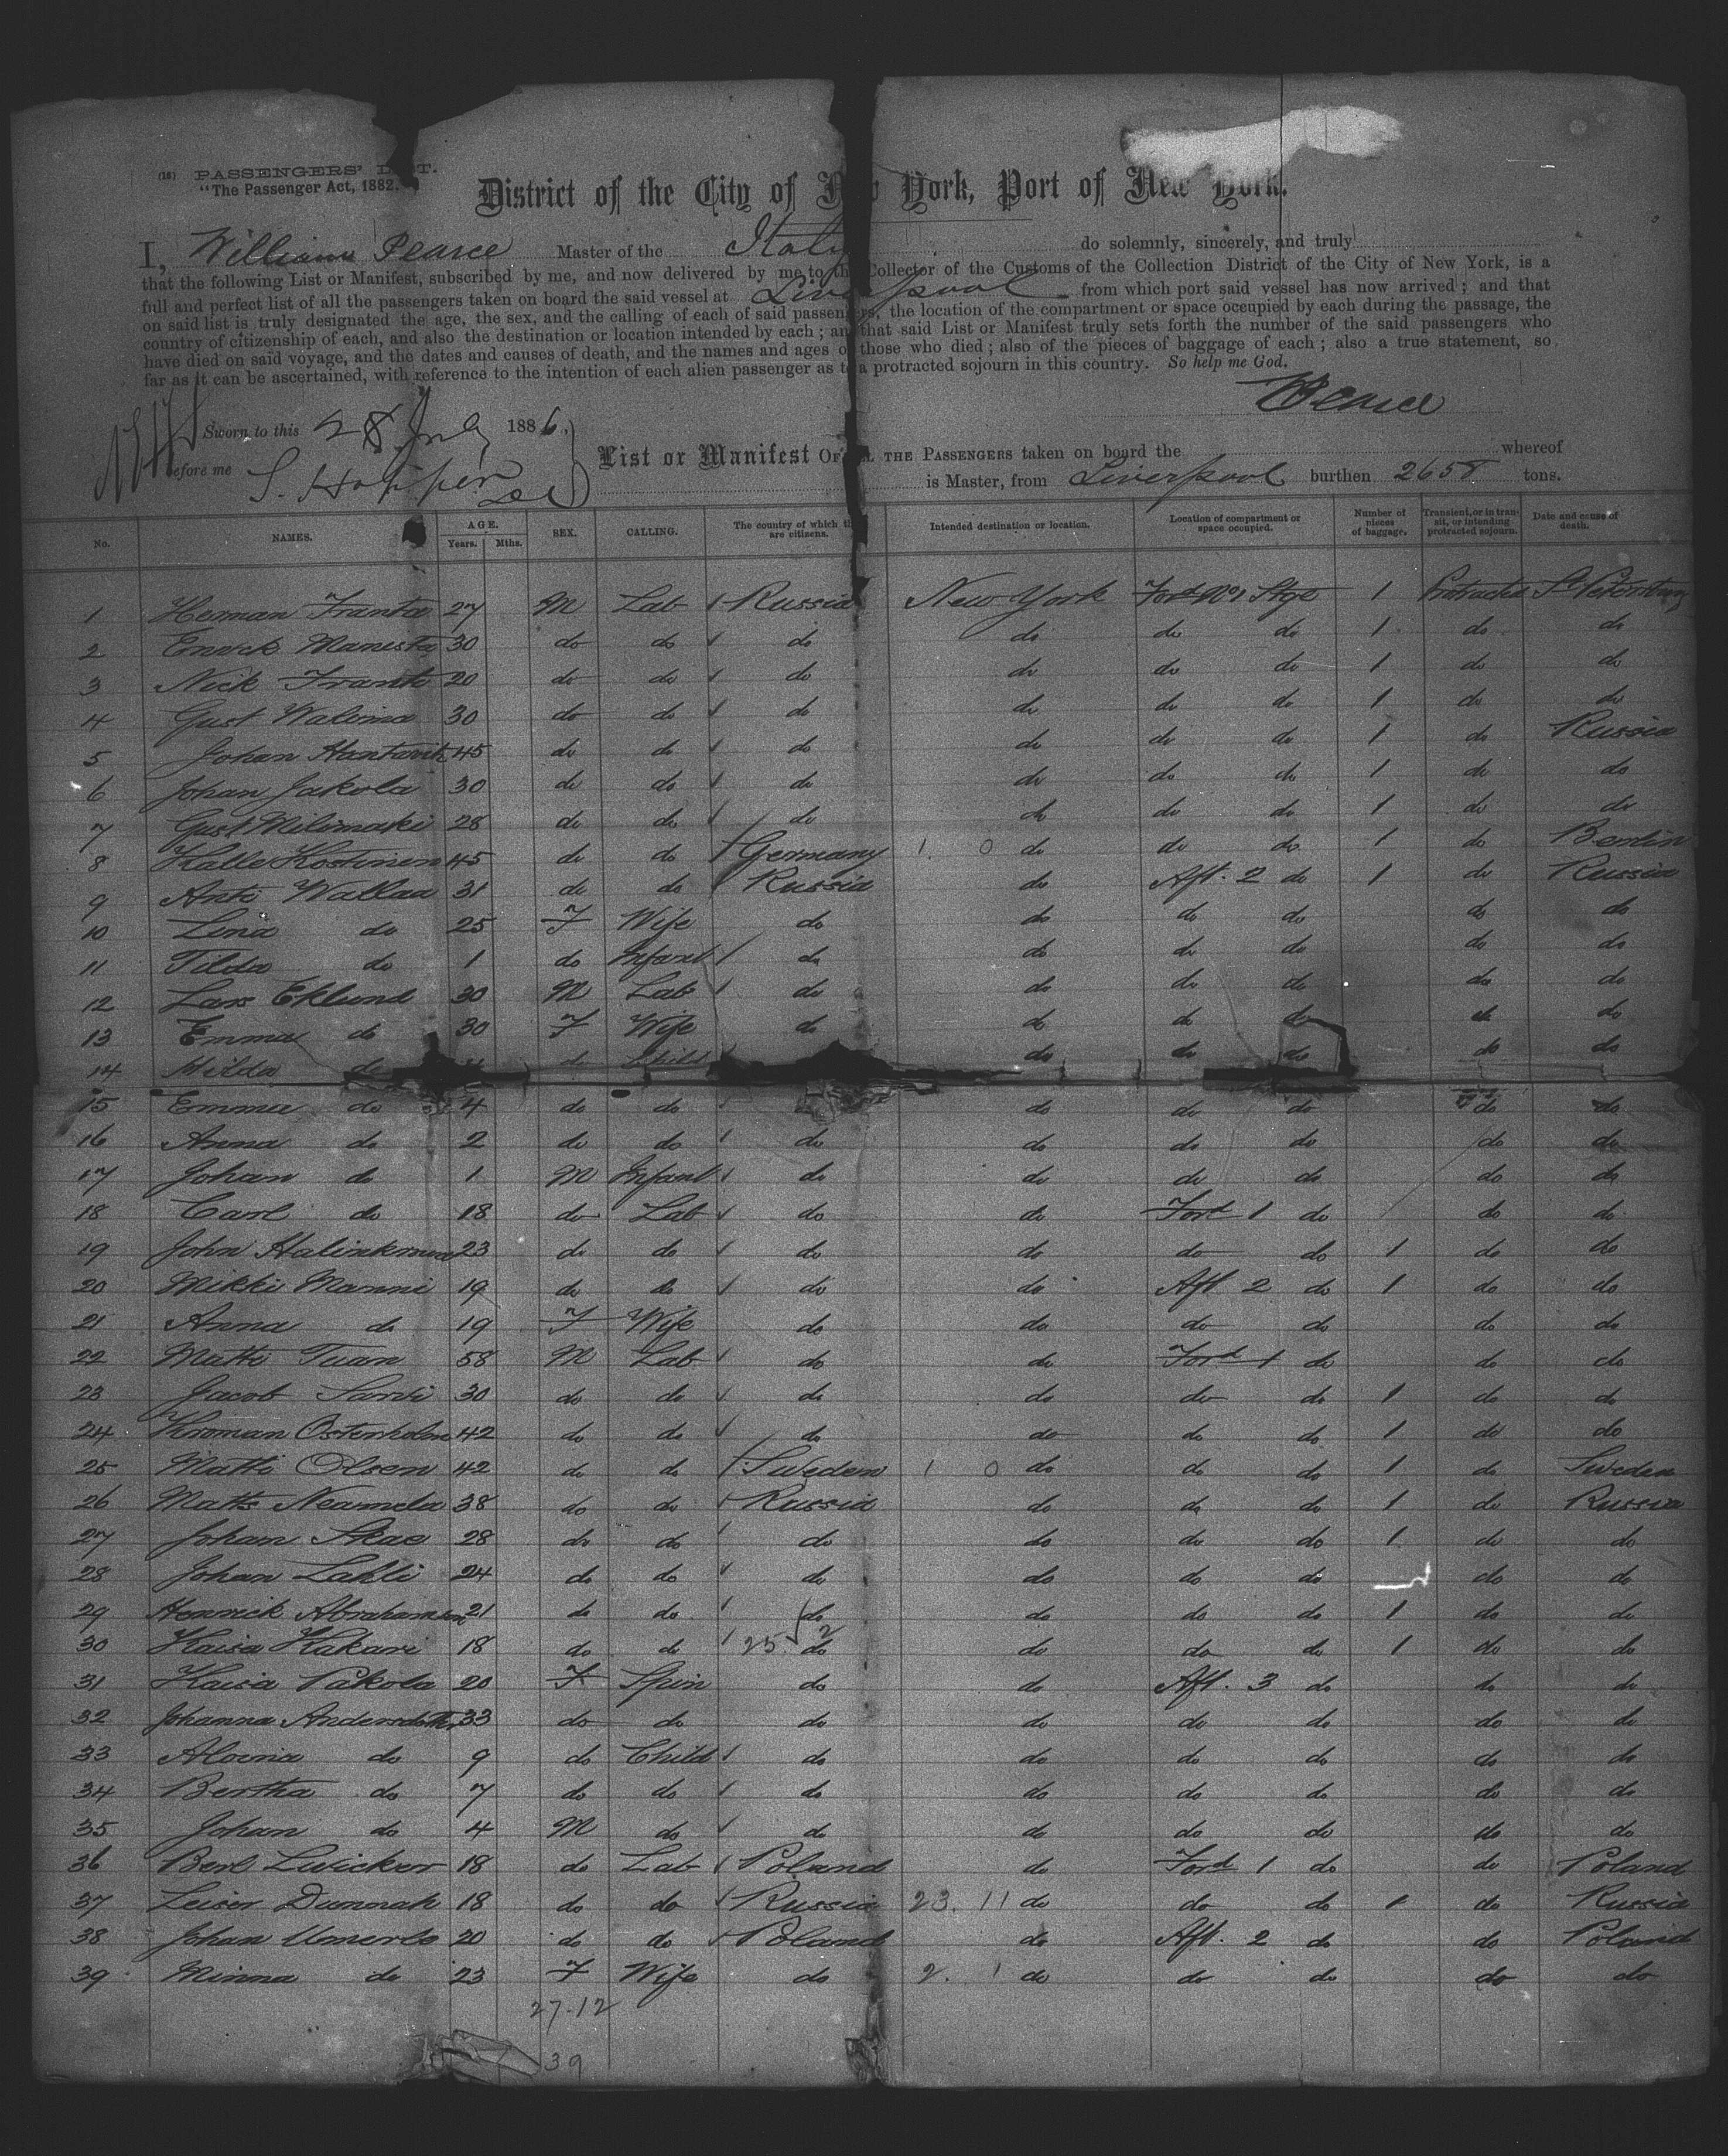 (18) PASSENGERS' LIST.
"The Passenger Act, 1882."
District of the City of New York, Port of New York.
I, William Pearce Master of the Italy do solemnly, sincerely, and truly
that the following List or Manifest, subscribed by me, and now delivered by me to the Collector of the Customs of the Collection District of the City of New York, is a
full and perfect list of all the passengers taken on board the said vessel at Liverpool from which port said vessel has now arrived; and that
on said list is truly designated the age, the sex, and the calling of each of said passengers, the location of the compartment or space occupied by each during the passage, the
country of citizenship of each, and also the destination or location intended by each; and that said List or Manifest truly sets forth the number of the said passengers who
have died on said voyage, and the dates and causes of death, and the names and ages of those who died; also of the pieces of baggage of each; also a true statement, so
far as it can be ascertained, with reference to the intention of each alien passenger as to a protracted sojourn in this country. So help me God.
Pearce
Sworn to this 28 July 1886,
before me S. Hopper
List or Manifest OF ALL THE PASSENGERS taken on board the whereof
is Master, from Liverpool burthen 2658 tons.
No. NAMES. AGE. Years. Mths. SEX. CALLING. The country of which they are citizens. Intended destination or location. Location of compartment or space occupied. Number of pieces of baggage. Transient, or in transit, or intending protracted sojourn. Date and cause of death.
1 Herman Franta 27 M Lab Russia New York Ford No 1 Stge 1 Protracted St Petersburg
2 Enock Manesta 30 do do do do do do 1 do do
3 Nick Frank 20 do do do do do do 1 do do
4 Gust Waloina 30 do do do do do do 1 do do
5 Johan 45 do do do do do do 1 do Russia
6 Johan Jakola 30 do do do do do do 1 do do
7 Gust Milimaki 28 do do do do do do 1 do do
8 Kalle Kostinen 45 do do Germany 1 0 do do do 1 do Berlin
9 Anti Wallaa 31 do do Russia do Aft. 2 do 1 do Russia
10 Lina do 25 F Wife do do do do do do
11 Tilda do 1 do Infant do do do do do do
12 Lars Eklund 30 M Lab do do do do do do
13 Emma do 30 F Wife do do do do do do
14 Hilda do do Child do do do do do
15 Emma do 4 do do do do do do do
16 Anna do 2 do do do do do do do do
17 Johan do 1 M Infant do do do do do do
18 Carl do 18 do Lab do do Ford 1 do do do
19 John 23 do do do do do do 1 do do
20 Mikki Manni 19 do do do do Aft. 2 do 1 do do
21 Anna do 19 F Wife do do do do do do
22 Matti Tuan 58 M Lab do do Ford 1 do do do
23 Jacob Santi 30 do do do do do do 1 do do
24 Kroman Ostenholm 42 do do do do do do 1 do do
25 Matti Olsen 42 do do Sweden 1 0 do do do 1 do Sweden
26 Matts Neamela 38 do do Russia do do do 1 do Russia
27 Johan Skae 28 do do do do do do 1 do do
28 Johan Lahli 24 do do do do do do do do
29 Henrick Abrahamson 21 do do do do do do 1 do do
30 Kaisa Kakari 18 do do 25 2 do do do do 1 do do
31 Kaisa Pakola 20 F Spin do do Aft. 3 do do do
32 Johanna Andersdotter 33 do do do do do do do do
33 Alvina do 9 do Child do do do do do do
34 Bertha do 7 do do do do do do do do
35 Johan do 4 M do do do do do do do
36 Berl Lwicker 18 do Lab Poland do Ford 1 do do Poland
37 Leiser Dunnah 18 do do Russia 23. 11 do do do 1 do Russia
38 Johan Umerlo 20 do do Poland do Aft. 2 do do Poland
39 Minna do 23 F Wife do 2. 1 do do do do do
27-12
39